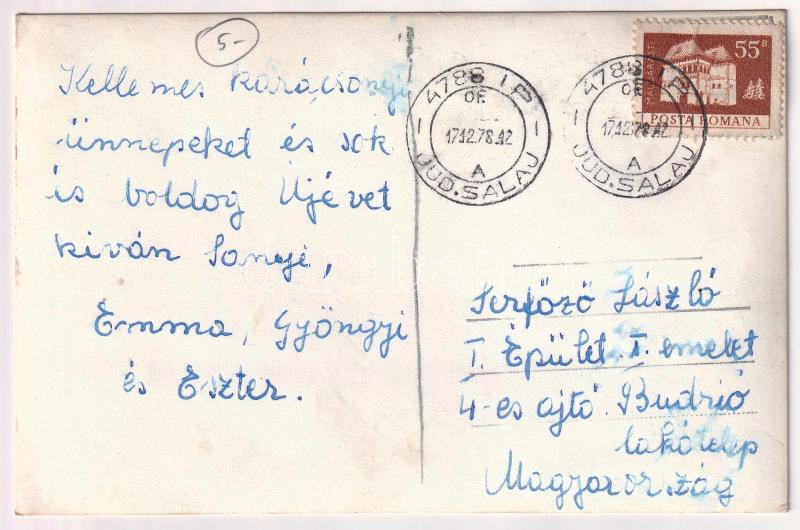 5-
Kellemes karácsonyi
ünnepeket és sok
és boldog Újévet
kíván Sanyi,
Emma, Gyöngyi
és Eszter.
4788 IP
OF.
17.12.78.12
A
JUD. SALAJ
4788 IP
OF.
17.12.78.12
A
JUD. SALAJ
55 B
POSTA ROMANA
Serfőző László
I. Épület. I. emelet
4-es ajtó. Budrió
lakótelep
Magyarország